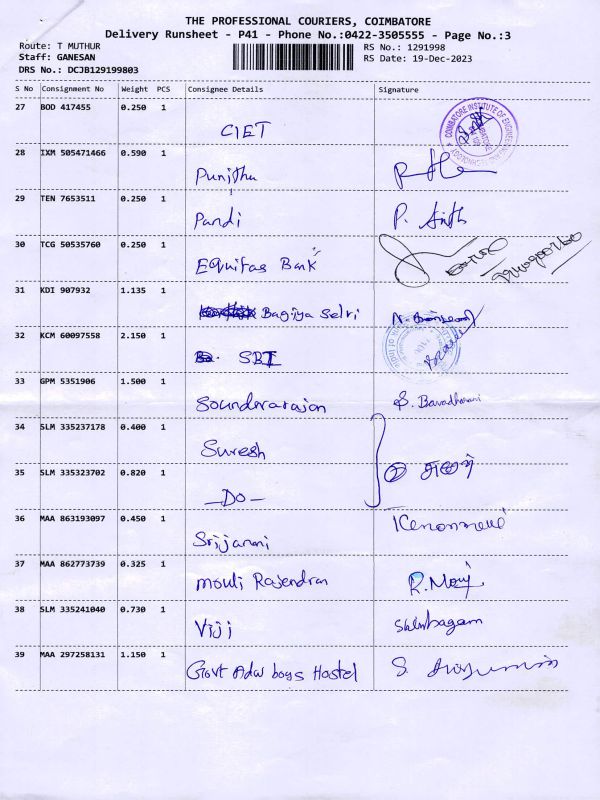 THE PROFESSIONAL COURIERS, COIMBATORE
Delivery Runsheet - P41 - Phone No.:0422-3505555 - Page No.:3
Route: T MUTHUR RS No.: 1291998
Staff: GANESAN RS Date: 19-Dec-2023
DRS No.: DCJB129199803
S No Consignment No Weight PCS Consignee Details Signature
27 BOD 417455 0.250 1
CIET
28 IXM 505471466 0.590 1
Punitha
29 TEN 7653511 0.250 1
Pandi
30 TCG 50535760 0.250 1
Equitas Bank
31 KDI 907932 1.135 1
Bagiya Selvi
32 KCM 60097558 2.150 1
SBI
33 GPM 5351906 1.500 1
Soundararajan S. Bavadharani
34 SLM 335237178 0.400 1
Suresh
35 SLM 335323702 0.820 1
-DO- ②
36 MAA 863193097 0.450 1
Srijanani
37 MAA 862773739 0.325 1
Mouli Rajendran R. Mouj
38 SLM 335241040 0.730 1
Viji Shenbagam
39 MAA 297258131 1.150 1
Govt Adw boys Hostel S.